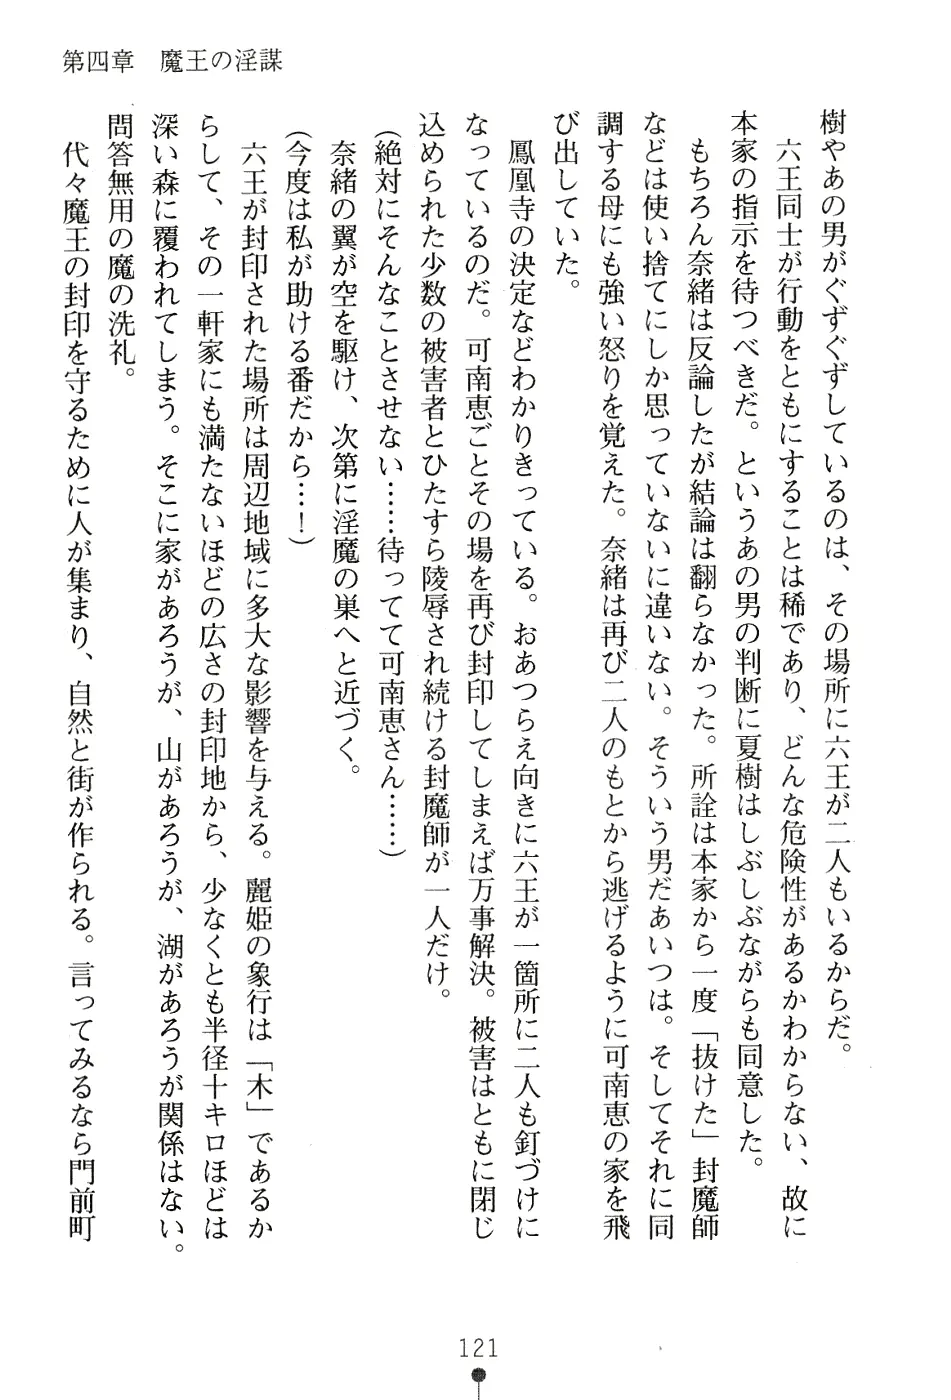 第四章　魔王の淫謀
樹やあの男がぐずぐずしているのは、その場所に六王が二人もいるからだ。
六王同士が行動をともにすることは稀であり、どんな危険性があるかわからない、故に
本家の指示を待つべきだ。というあの男の判断に夏樹はしぶしぶながらも同意した。
もちろん奈緒は反論したが結論は翻らなかった。所詮は本家から一度「抜けた」封魔師
などは使い捨てにしか思っていないに違いない。そういう男だあいつは。そしてそれに同
調する母にも強い怒りを覚えた。奈緒は再び二人のもとから逃げるように可南恵の家を飛
び出していた。
鳳凰寺の決定などわかりきっている。おあつらえ向きに六王が一箇所に二人も釘づけに
なっているのだ。可南恵ごとその場を再び封印してしまえば万事解決。被害はともに閉じ
込められた少数の被害者とひたすら陵辱され続ける封魔師が一人だけ。
(絶対にそんなことさせない……待ってて可南恵さん……)
奈緒の翼が空を駆け、次第に淫魔の巣へと近づく。
(今度は私が助ける番だから…！)
六王が封印された場所は周辺地域に多大な影響を与える。麗姫の象行は「木」であるか
らして、その一軒家にも満たないほどの広さの封印地から、少なくとも半径十キロほどは
深い森に覆われてしまう。そこに家があろうが、山があろうが、湖があろうが関係はない。
問答無用の魔の洗礼。
代々魔王の封印を守るために人が集まり、自然と街が作られる。言ってみるなら門前町
121